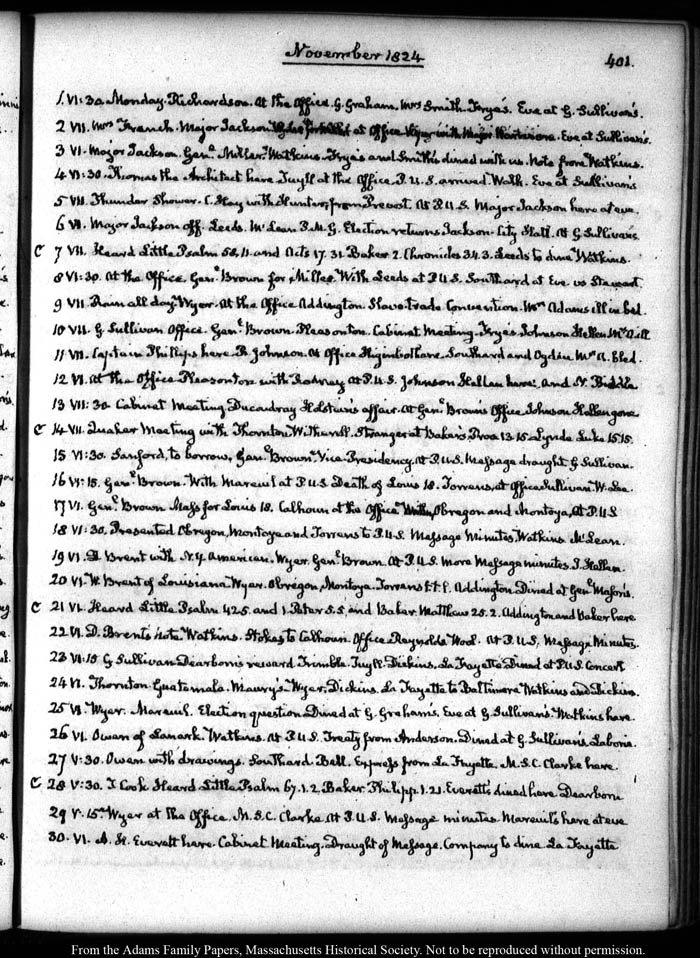 November 1824
401.
1. VI:30. Monday. Richardson. At the Office. G. Graham, Mrs Smith. Frye's. Eve at G. Sullivan's.
2 VII. Mrs French. Major Jackson at Office Wyer with Major Eve at Sullivan's.
3 VI. Major Jackson. Genl. Miller. Watkins. Frye's and Smith's dined with us. Note from Watkins.
4 VI:30. Thomas the Architect here Tuyll at the Office P.U.S. arrived. Walk. Eve at Sullivan's
5 VII. Thunder Shower. C. Hay with Hunter, from Prevost. At P.U.S. Major Jackson here at eve.
6 VI. Major Jackson off. Leeds. McLean P.M.G. Election returns Jackson. City Hall. At G. Sullivan's.
C 7 VII. Heard Little Psalm 58.11. and Acts 17.31. Baker 2. Chronicles 34.3. Leeds to dine Watkins.
8 VI:30. At the Office. Genl. Brown for Miller. With Leeds at P.U.S. Southard at Eve. vs Stewart.
9 VII. Rain all day. Wyer. At the Office Addington. Slave-trade Convention. Mrs Adams ill in bed.
10 VII. G. Sullivan Office. Genl. Brown. Pleasonton. Cabinet Meeting. Frye's Johnson Hellen Mrs A ill
11 VII. Captain Phillips here. R. Johnson. At Office Higinbotham. Southard and Ogden Mrs A. bled.
12 VI. At the Office Pleasonton with Rodney at P.U.S. Johnson Hellen here. and N. Biddle
13 VII:30. Cabinet Meeting Ducoudray Holstein's affair. At Genl. Brown's Office. Johnson Hellen gone
C 14 VII. Quaker Meeting with Thornton. Witherell. Stranger at Baker's. Prov. 13.15. Lynde Luke 15.15.
15 VI:30. Sanford, to borrow. Genl. Brown. Vice-Presidency. At P.U.S. Message draught G. Sullivan.
16 VI:15. Genl. Brown. With Mareuil at P.U.S Death of Louis 18. Torrens, at Office Sullivan W. Lee.
17 VI. Genl. Brown Mass for Louis 18. Calhoun at the Office Obregon and Montoya, At P.U.S
18 VI:30. Presented Obregon, Montoya and Torrens to P.U.S Message Minutes Watkins McLean.
19 VI. D. Brent with N. Y American. Wyer. Genl. Brown. At P.U.S. more Message minutes. J. Hellen.
20 VI. W. Brent of Louisiana Wyer. Obregon, Montoya. Torrens t.t.l. Addington Dined at Genl. Mason's.
C 21 VI. Heard Little Psalm 42.5. and 1. Peter 5.5. and Baker. Matthew 25.2. Addington and Baker here
22 VI. D. Brent's note Watkins. Stokes to Calhoun. Office Reynolds Wool. At P.U.S. Message Minutes.
23 VI:15 G Sullivan Dearborn's reward Trimble. Tuyll. Dickins. La Fayette Dined at P.U.S Concert
24 VI. Thornton Guatemala. Maury's Wyer, Dickins. La Fayette to Baltimore Watkins and Dickins.
25 VI Wyer. Mareuil. Election question Dined at G. Graham's. Eve at G Sullivan's Watkins here.
26 VI. Owen of Lanark. Watkins. At P.U.S. Treaty from Anderson. Dined at G. Sullivan's. Laborie.
27 V:30. Owen with drawings. Southard Bell. Express from La Fayette. M. S.C. Clarke here.
C 28 V:30. I. Cook. Heard Little Psalm 67.1.2. Baker Philipp. 1.21. Everett's dined here Dearborn
29 V. 15. Wyer at the Office. M. S.C. Clarke At P.U.S. Message minutes Mareuil's here at eve
30. VI. A. H. Everett here. Cabinet Meeting. Draught of Message. Company to dine La Fayette
From the Adams Family Papers, Massachusetts Historical Society. Not to be reproduced without permission.